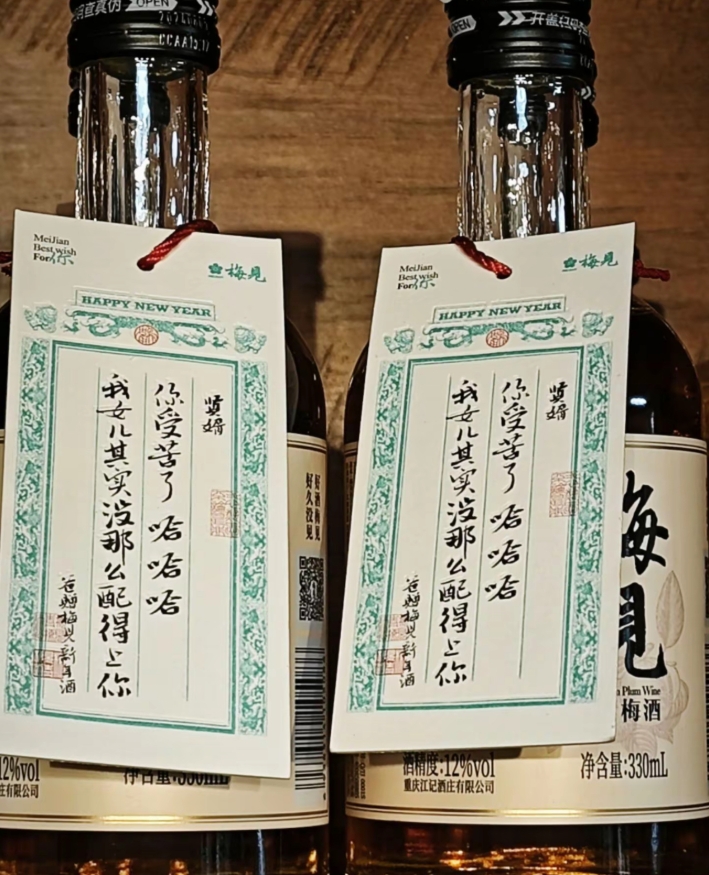 OPEN
OPEN
MeiJian
Best wish
For你
梅見
HAPPY NEW YEAR
贤婿
你受苦了 哈哈哈
我女儿其实没那么配得上你
爸赠梅见新年酒
好酒梅见
好久没见
12%vol
净含量:330mL
MeiJian
Best wish
For你
梅見
HAPPY NEW YEAR
贤婿
你受苦了 哈哈哈
我女儿其实没那么配得上你
爸赠梅见新年酒
梅見
Plum Wine
梅酒
酒精度:12%vol
重庆江记酒庄有限公司
净含量:330mL